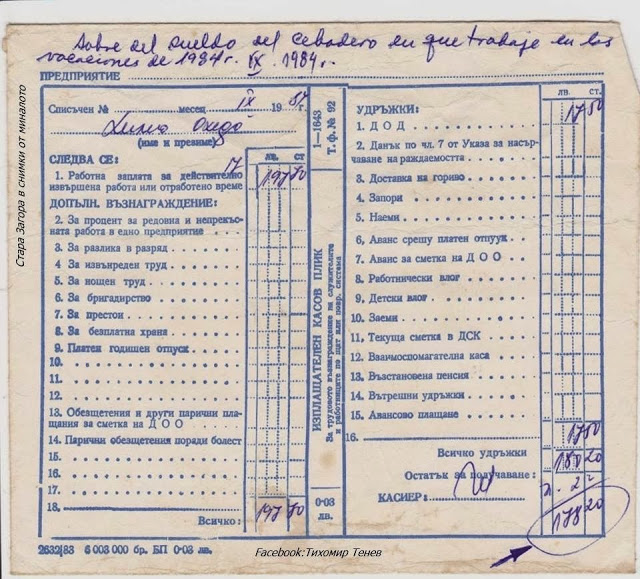 Sobre del sueldo del cebadero en que trabaje en las
vacaciones de 1984 г. IX. 1984 г.
ПРЕДПРИЯТИЕ
Списъчен № месец IX 1984 г.
(име и презиме)
СЛЕДВА СЕ:
17
лв. ст
1. Работна заплата за действително
извършена работа или отработено време
197 70
ДОПЪЛН. ВЪЗНАГРАЖДЕНИЕ:
2. За процент за редовна и непрекъс-
ната работа в едно предприятие
3. За разлика в разряд
4. За извънреден труд
5. За нощен труд
6. За бригадирство
7. За престои
8. За безплатна храна
9. Платен годишен отпуск
10.
11.
12.
13. Обезщетения и други парични пла-
щания за сметка на Д О О
14. Парични обезщетения поради болест
15.
16.
17.
18.
Всичко: 197 70
2632/83 6 003 000 бр. БП 0·03 лв.
1—1643
Т. ф. № 92
ИЗПЛАЩАТЕЛЕН КАСОВ ПЛИК
За трудовото възнаграждение на служителите
и работниците по щат или повр. система
0·03
лв.
УДРЪЖКИ:
лв. ст.
1. Д О Д 17 50
2. Данък по чл. 7 от Указа за насър-
чаване на раждаемостта
3. Доставка на гориво
4. Запори
5. Наеми
6. Аванс срещу платен отпуск
7. Аванс за сметка на Д О О
8. Работнически влог
9. Детски влог
10. Заеми
11. Текуща сметка в ДСК
12. Взаимоспомагателна каса
13. Възстановена пенсия
14. Вътрешни удръжки
15. Авансово плащане
16.
Всичко удръжки 17 50
Остатък за получаване: 180 20
КАСИЕР:
2
178 20
Стара Загора в снимки от миналото
Facebook:Тихомир Тенев